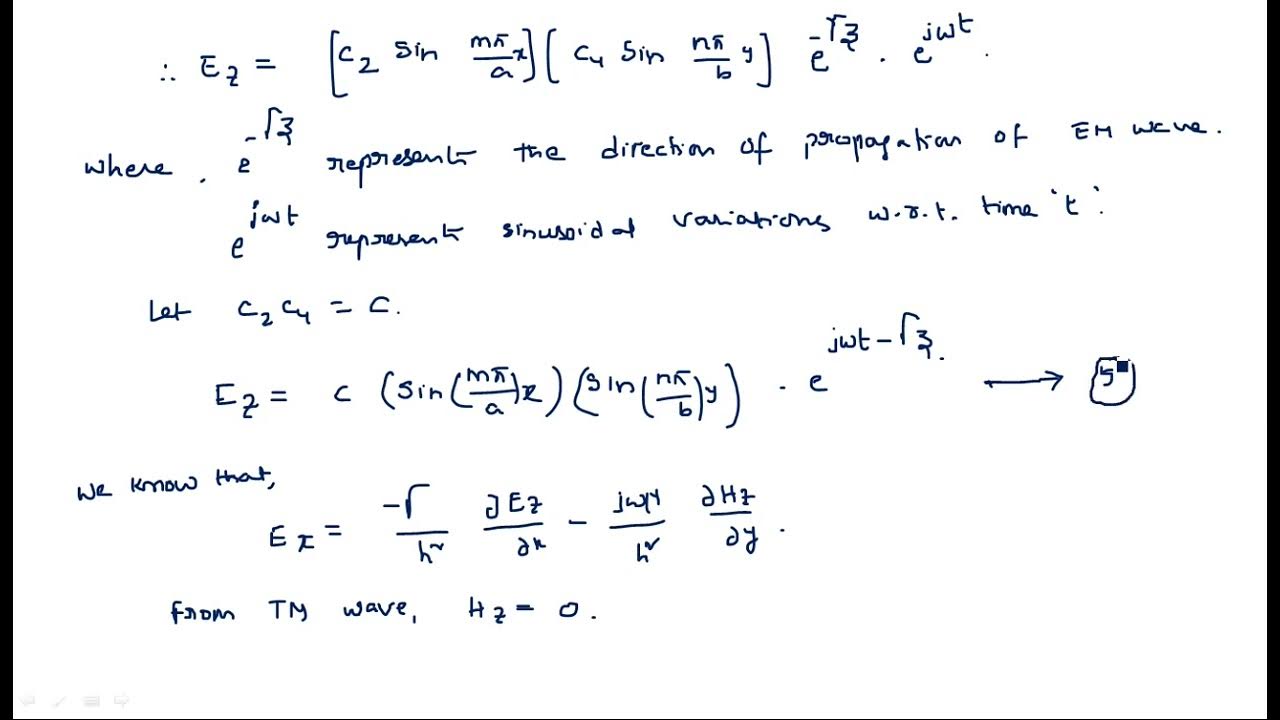 ∴ Ez = [C2 sin mπ/a x] [C4 sin nπ/b y] e^-Γz . e^jωt.
where, e^-Γz represents the direction of propagation of EM wave.
e^jωt represents sinusoidal variations w.r.t. time 't'.
Let C2 C4 = C.
Ez = C (sin(mπ/a)x) (sin(nπ/b)y) . e^jωt-Γz. → 5
We know that,
Ex = -Γ/h² ∂Ez/∂x - jωμ/h² ∂Hz/∂y.
from TM wave, Hz = 0.